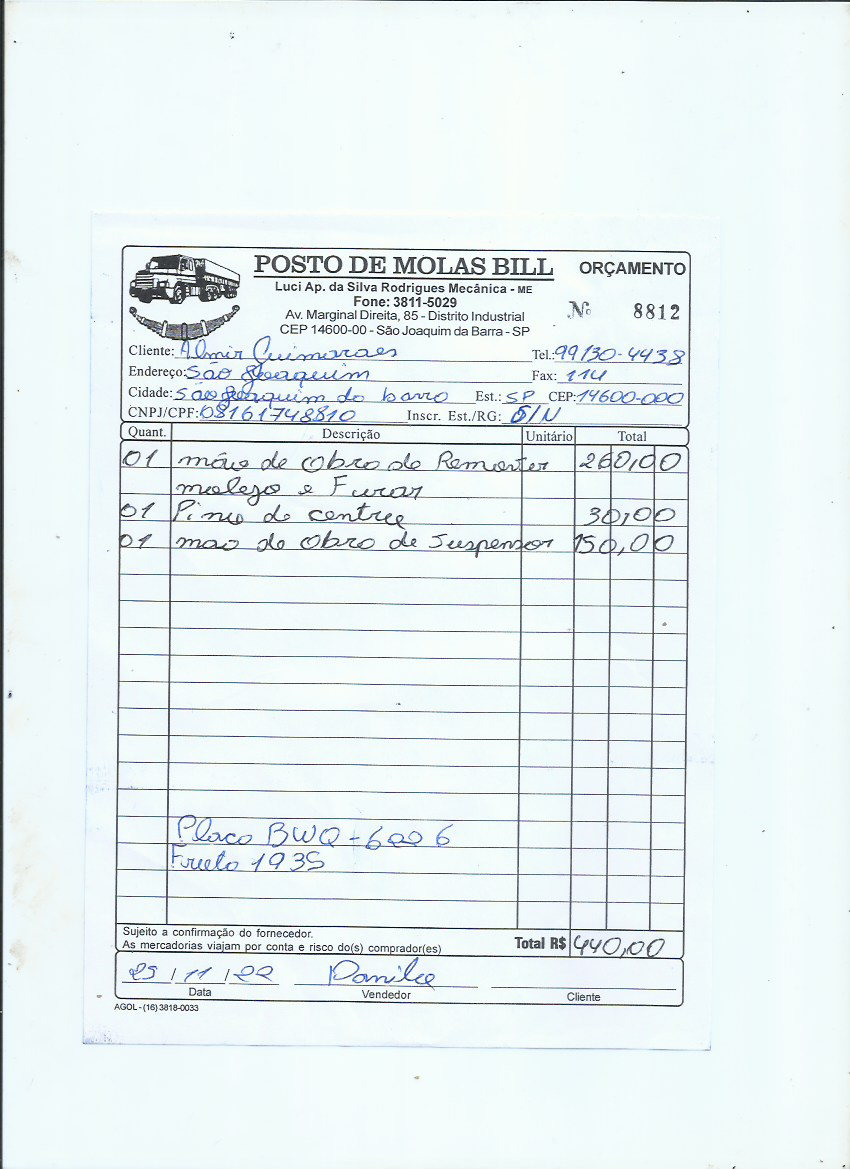 POSTO DE MOLAS BILL
ORÇAMENTO
Luci Ap. da Silva Rodrigues Mecânica - ME
Fone: 3811-5029
Nº 8812
Av. Marginal Direita, 85 - Distrito Industrial
CEP 14600-00 - São Joaquim da Barra - SP
Cliente: Almir Guimaraes Tel.: 99130-4438
Endereço: São Joaquim Fax: 114
Cidade: São Joaquim da barra Est.: SP CEP: 14600-000
CNPJ/CPF: 08161748810 Inscr. Est./RG: S/N
Quant. Descrição Unitário Total
01 mão de obra de Remonter 260,00
molejo e Furar
01 Pino de centro 30,00
01 mao de obra de Suspensor 150,00
Placa BWQ-6006
Frueto 1935
Sujeito a confirmação do fornecedor.
As mercadorias viajam por conta e risco do(s) comprador(es)
Total R$ 440,00
25/11/22 Danila
Data Vendedor Cliente
AGOL - (16) 3818-0033